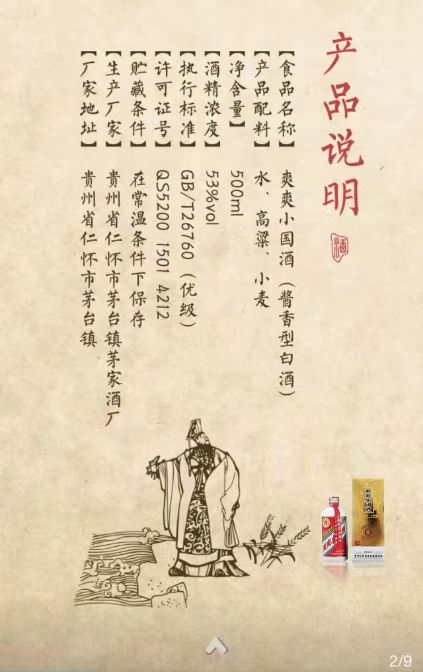 产品说明
酒
【食品名称】 爽爽小国酒（酱香型白酒）
【产品配料】 水、高粱、小麦
【净含量】 500ml
【酒精浓度】 53%vol
【执行标准】 GB/T26760（优级）
【许可证号】 QS5200 1501 4212
【贮藏条件】 在常温条件下保存
【生产厂家】 贵州省仁怀市茅台镇茅家酒厂
【厂家地址】 贵州省仁怀市茅台镇
2/9